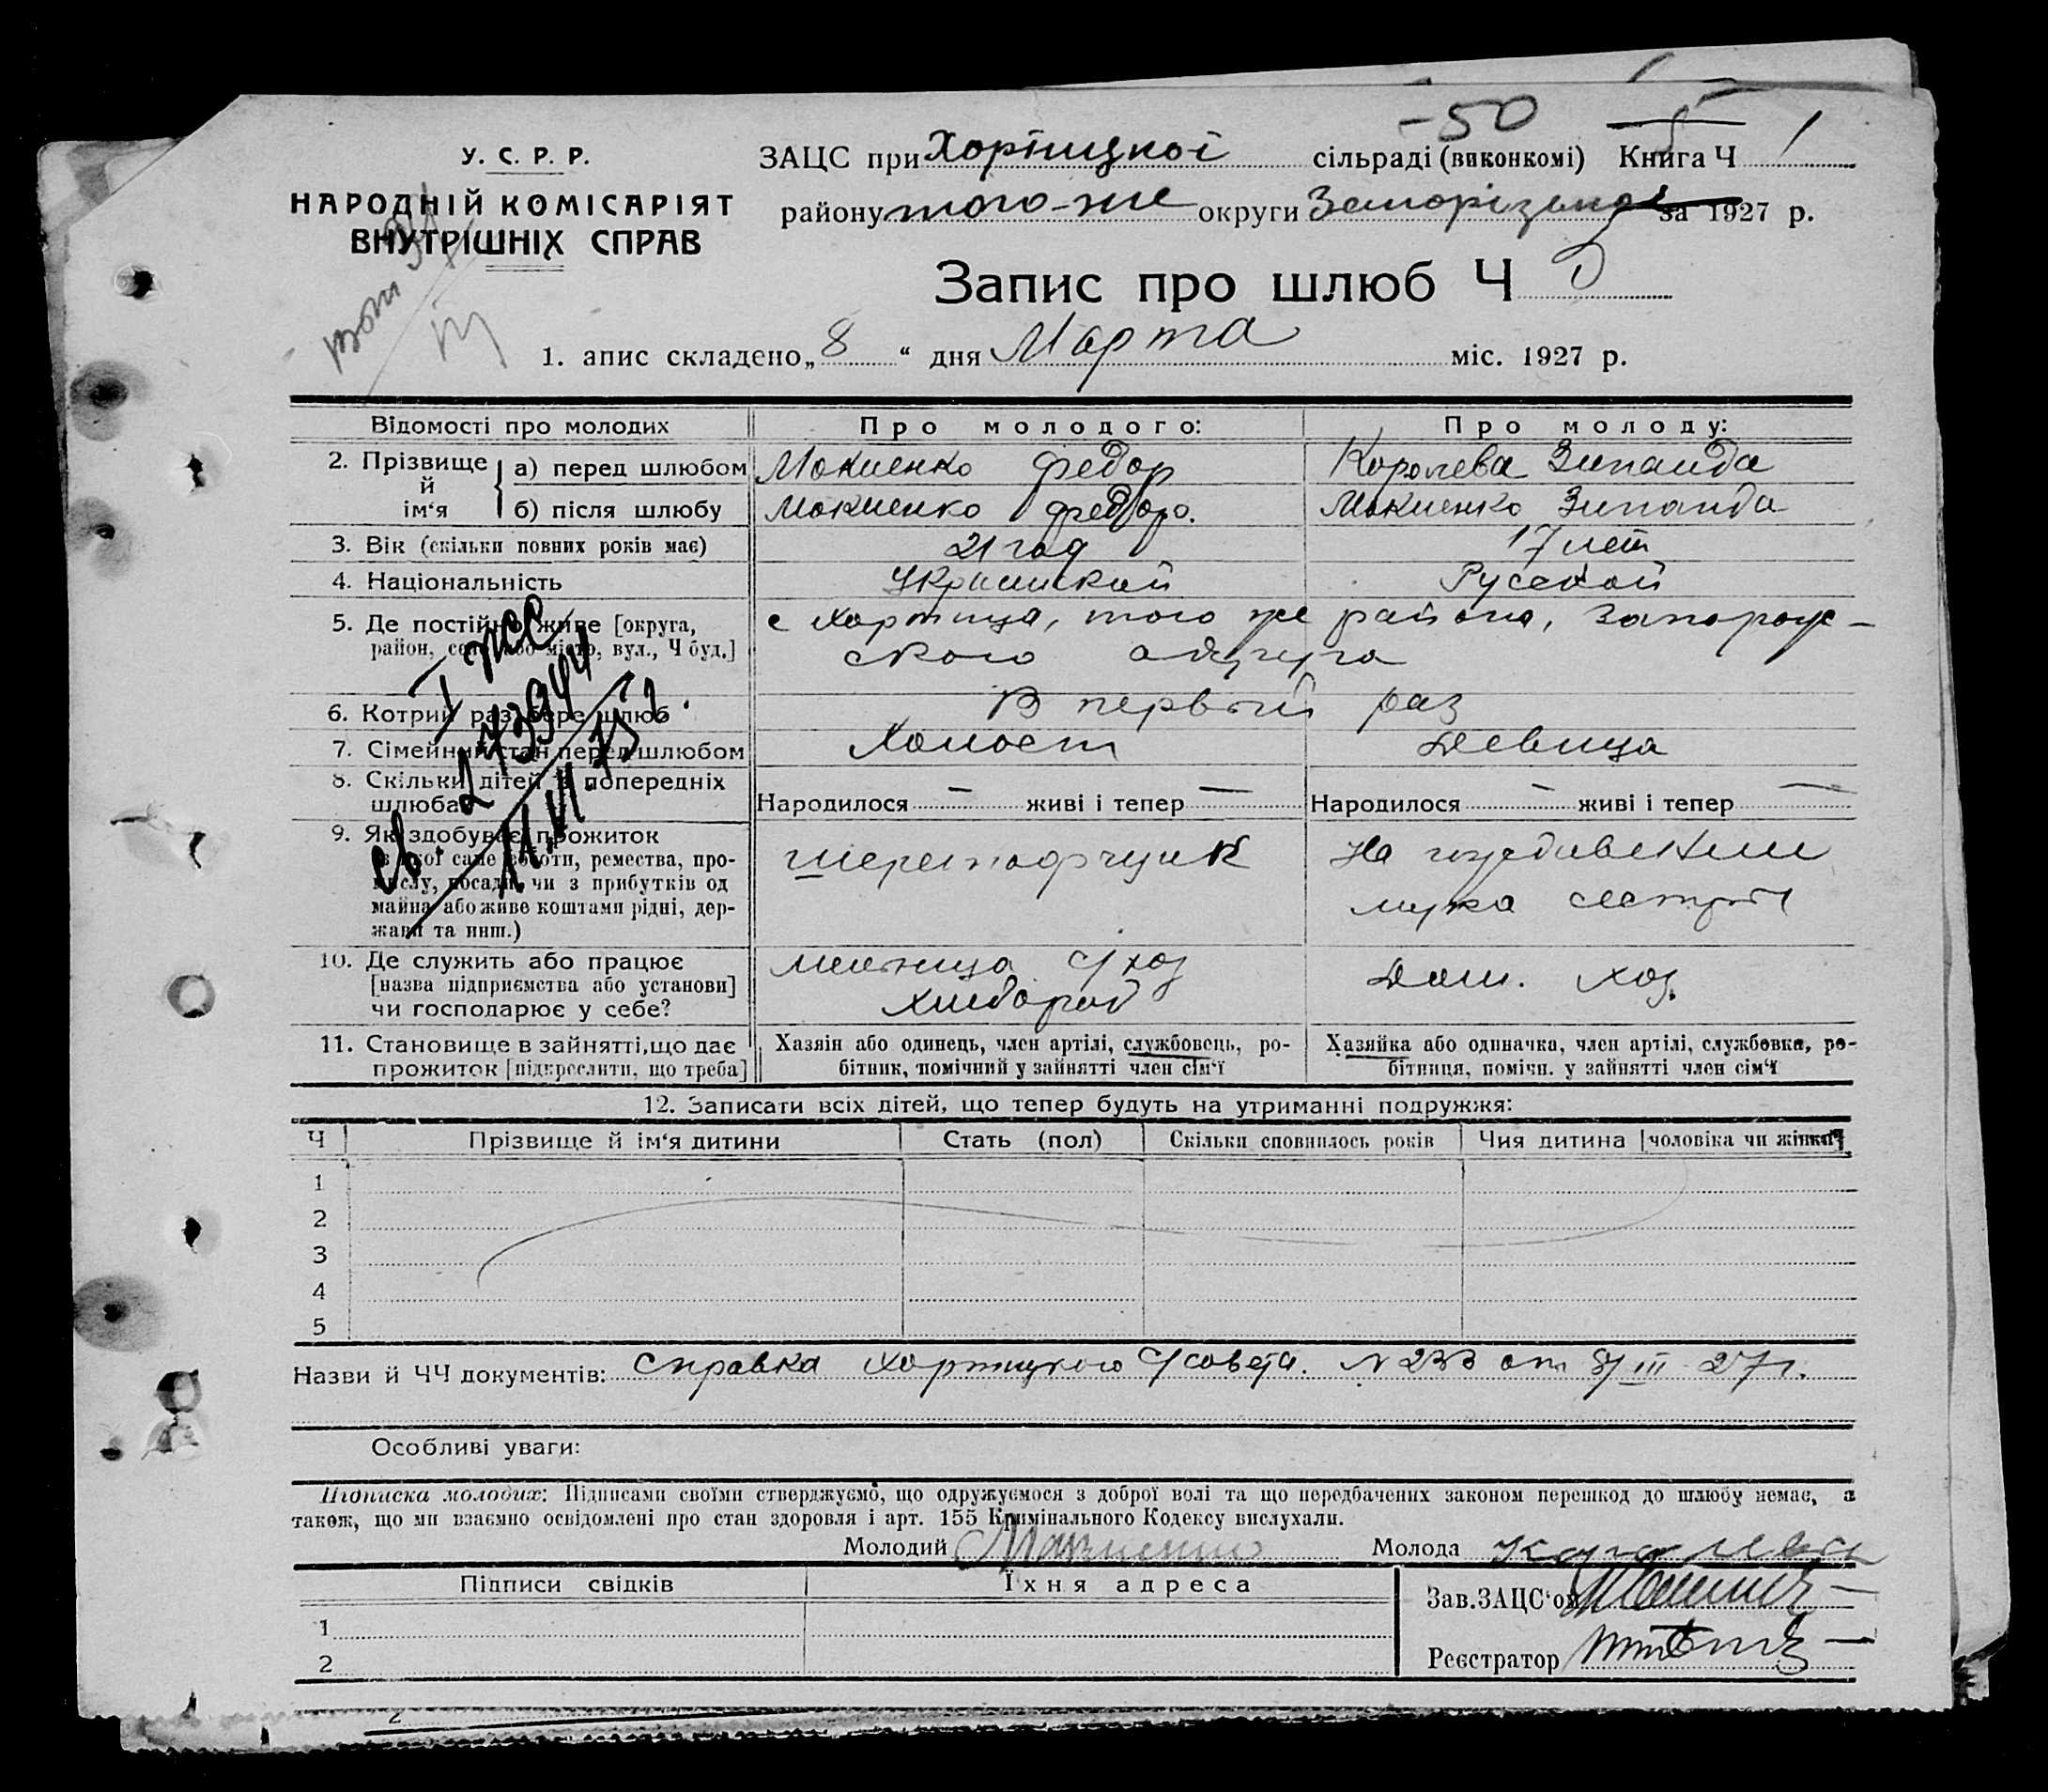 -50
У. С. Р. Р.
НАРОДНІЙ КОМІСАРІЯТ
ВНУТРІШНІХ СПРАВ
ЗАЦС при Хортицкої сільраді (виконкомі) Книга Ч 1
району того-же округи за 1927 р.
Запис про шлюб Ч 5
1. апис складено „8“ дня Марта міс. 1927 р.
Відомості про молодих Про молодого: Про молоду:
2. Прізвище й ім‘я
а) перед шлюбом Мокиенко Федор Королева Зинаида
б) після шлюбу Мокиенко Федор. Мокиенко Зинаида
3. Вік (скільки повних років має) 21 год 17 лет
4. Національність Русской
5. Де постійно живе [округа, район, село або місто, вул., Ч буд.]
с Хортица, того же района, Запорож-
ского округа
6. Котрий раз бере шлюб В первый раз
7. Сімейний стан перед шлюбом Холост Девица
8. Скільки дітей з попередніх шлюбів
Народилося — живі і тепер — Народилося — живі і тепер —
9. Як здобуває прожиток
(з якої саме роботи, ремества, про-
мислу, посади чи з прибутків од
майна або живе коштами рідні, дер-
жави та инш.)
На иждивении
мужа сестры
10. Де служить або працює
[назва підприємства або установи]
чи господарює у себе?
мельница с/хоз
Дом. хоз.
11. Становище в зайнятті, що дає
прожиток [підкреслити, що треба]
Хазяін або одинець, член артілі, службовець, ро-
бітник, помічний у зайнятті член сім‘ї
Хазяйка або одиначка, член артілі, службовка, ро-
бітниця, помічн. у зайнятті член сім‘ї
I
св. 273944
12. Записати всіх дітей, що тепер будуть на утриманні подружжя:
Ч Прізвище й ім‘я дитини Стать (пол) Скільки сповнилось років Чия дитина [чоловіка чи жінки]
1
2
3
4
5
Назви й ЧЧ документів: Справка Хортицкого С/совета. N 233 от 8/III-27 г.
Особливі уваги:
Підписка молодих: Підписами своїми стверджуємо, що одружуємося з доброї волі та що передбачених законом перешкод до шлюбу немає, а
також, що ми взаємно освідомлені про стан здоровля і арт. 155 Кримінального Кодексу вислухали.
Молодий Мокиенко Молода Королева
Підписи свідків Їхня адреса
Зав. ЗАЦС‘ой
1
2
Реєстратор
2